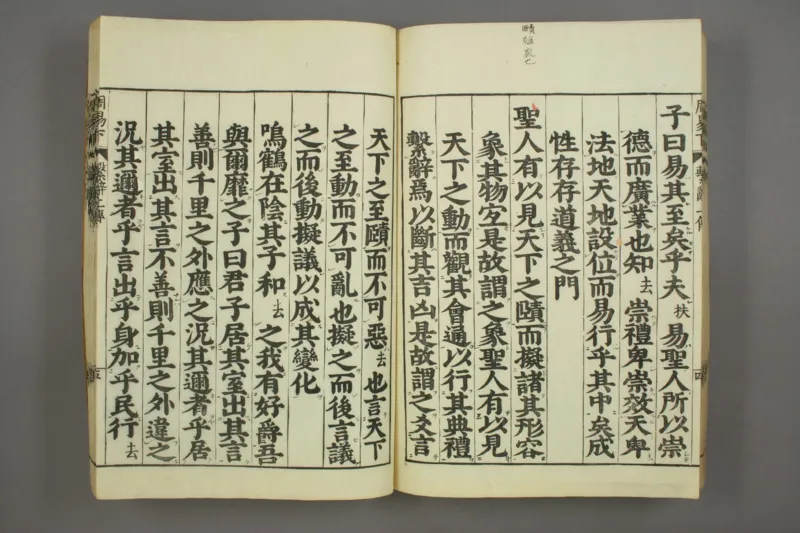 賾雜乱也
子曰易其至矣乎夫扶易聖人所以崇
德而廣業也知去崇禮卑崇效天卑
法地天地設位而易行乎其中矣成
性存存道義之門
聖人有以見天下之賾而擬諸其形容
象其物宜是故謂之象聖人有以見
天下之動而觀其會通以行其典禮
繫辭焉以斷其吉凶是故謂之爻言
天下之至賾而不可惡去也言天下
之至動而不可亂也擬之而後言議
之而後動擬議以成其變化
鳴鶴在陰其子和去之我有好爵吾
與爾靡之子曰君子居其室出其言
善則千里之外應之況其邇者乎居
其室出其言不善則千里之外違之
況其邇者乎言出乎身加乎民行去
周易下 繫辭上傳